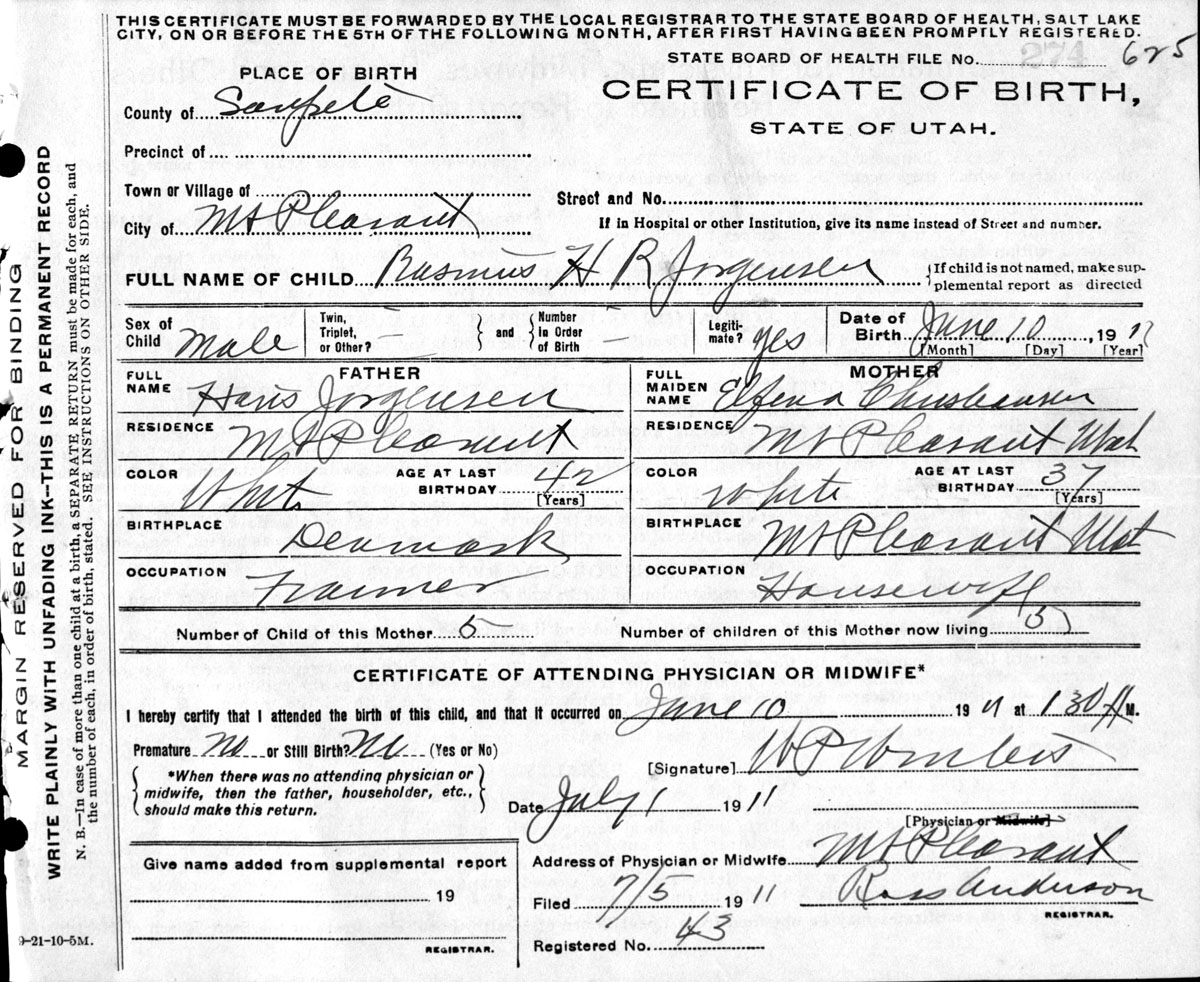 THIS CERTIFICATE MUST BE FORWARDED BY THE LOCAL REGISTRAR TO THE STATE BOARD OF HEALTH, SALT LAKE
CITY, ON OR BEFORE THE 5TH OF THE FOLLOWING MONTH, AFTER FIRST HAVING BEEN PROMPTLY REGISTERED.
STATE BOARD OF HEALTH FILE No. 274 625
PLACE OF BIRTH
CERTIFICATE OF BIRTH,
STATE OF UTAH.
County of Sanpete
Precinct of
Town or Village of
City of Mt Pleasant
Street and No.
If in Hospital or other Institution, give its name instead of Street and number.
FULL NAME OF CHILD Rasmus H R Jorgensen
{If child is not named, make sup-
plemental report as directed
Sex of Child Male
Twin, Triplet, or Other? —
and
Number in Order of Birth —
Legiti-mate? yes
Date of Birth June 10, 1911
[Month] [Day] [Year]
FATHER
FULL NAME Hans Jorgensen
RESIDENCE Mt Pleasant
COLOR White
AGE AT LAST BIRTHDAY 42
[Years]
BIRTHPLACE Denmark
OCCUPATION Farmer
MOTHER
FULL MAIDEN NAME Christiansen
RESIDENCE Mt Pleasant Utah
COLOR White
AGE AT LAST BIRTHDAY 37
[Years]
BIRTHPLACE Mt Pleasant Utah
OCCUPATION Housewife
Number of Child of this Mother 5
Number of children of this Mother now living 5
CERTIFICATE OF ATTENDING PHYSICIAN OR MIDWIFE*
I hereby certify that I attended the birth of this child, and that it occurred on June 10 1911 at 1 30 A M.
Premature No or Still Birth? No (Yes or No)
[Signature] W P Winters
{*When there was no attending physician or
midwife, then the father, householder, etc.,
should make this return.}
Date July 1 1911
[Physician or Midwife]
Give name added from supplemental report
19
REGISTRAR.
Address of Physician or Midwife Mt Pleasant
Filed 7/5 1911 Ross Anderson
REGISTRAR.
Registered No. 43
9-21-10-5M.
MARGIN RESERVED FOR BINDING
WRITE PLAINLY WITH UNFADING INK—THIS IS A PERMANENT RECORD
N. B.—In case of more than one child at a birth, a SEPARATE RETURN must be made for each, and
the number of each, in order of birth, stated. SEE INSTRUCTIONS ON OTHER SIDE.